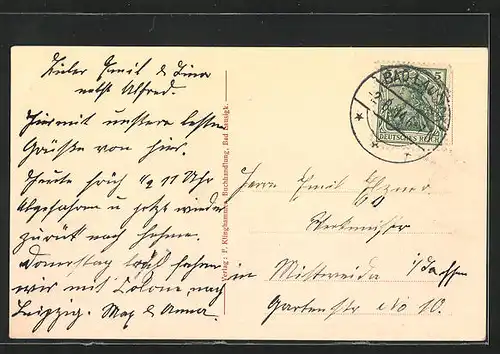 Lieber Emil & Lina
nebst Alfred.
Hiermit unsere besten
Grüße von hier.
Heute früh ½ 11 Uhr
Abgefahren u jetzt wieder
zurück nach
Donnerstag früh fahren
wir mit nach
Leipzig. Max & Anna.
Verlag: F. Klinghammer, Buchhandlung, Bad Lausigk.
BAD LAUSI
5
DEUTSCHES REICH
Herrn Emil
Werkmeister
in Mittweida i/Sachsen
Gartenstr No 10.